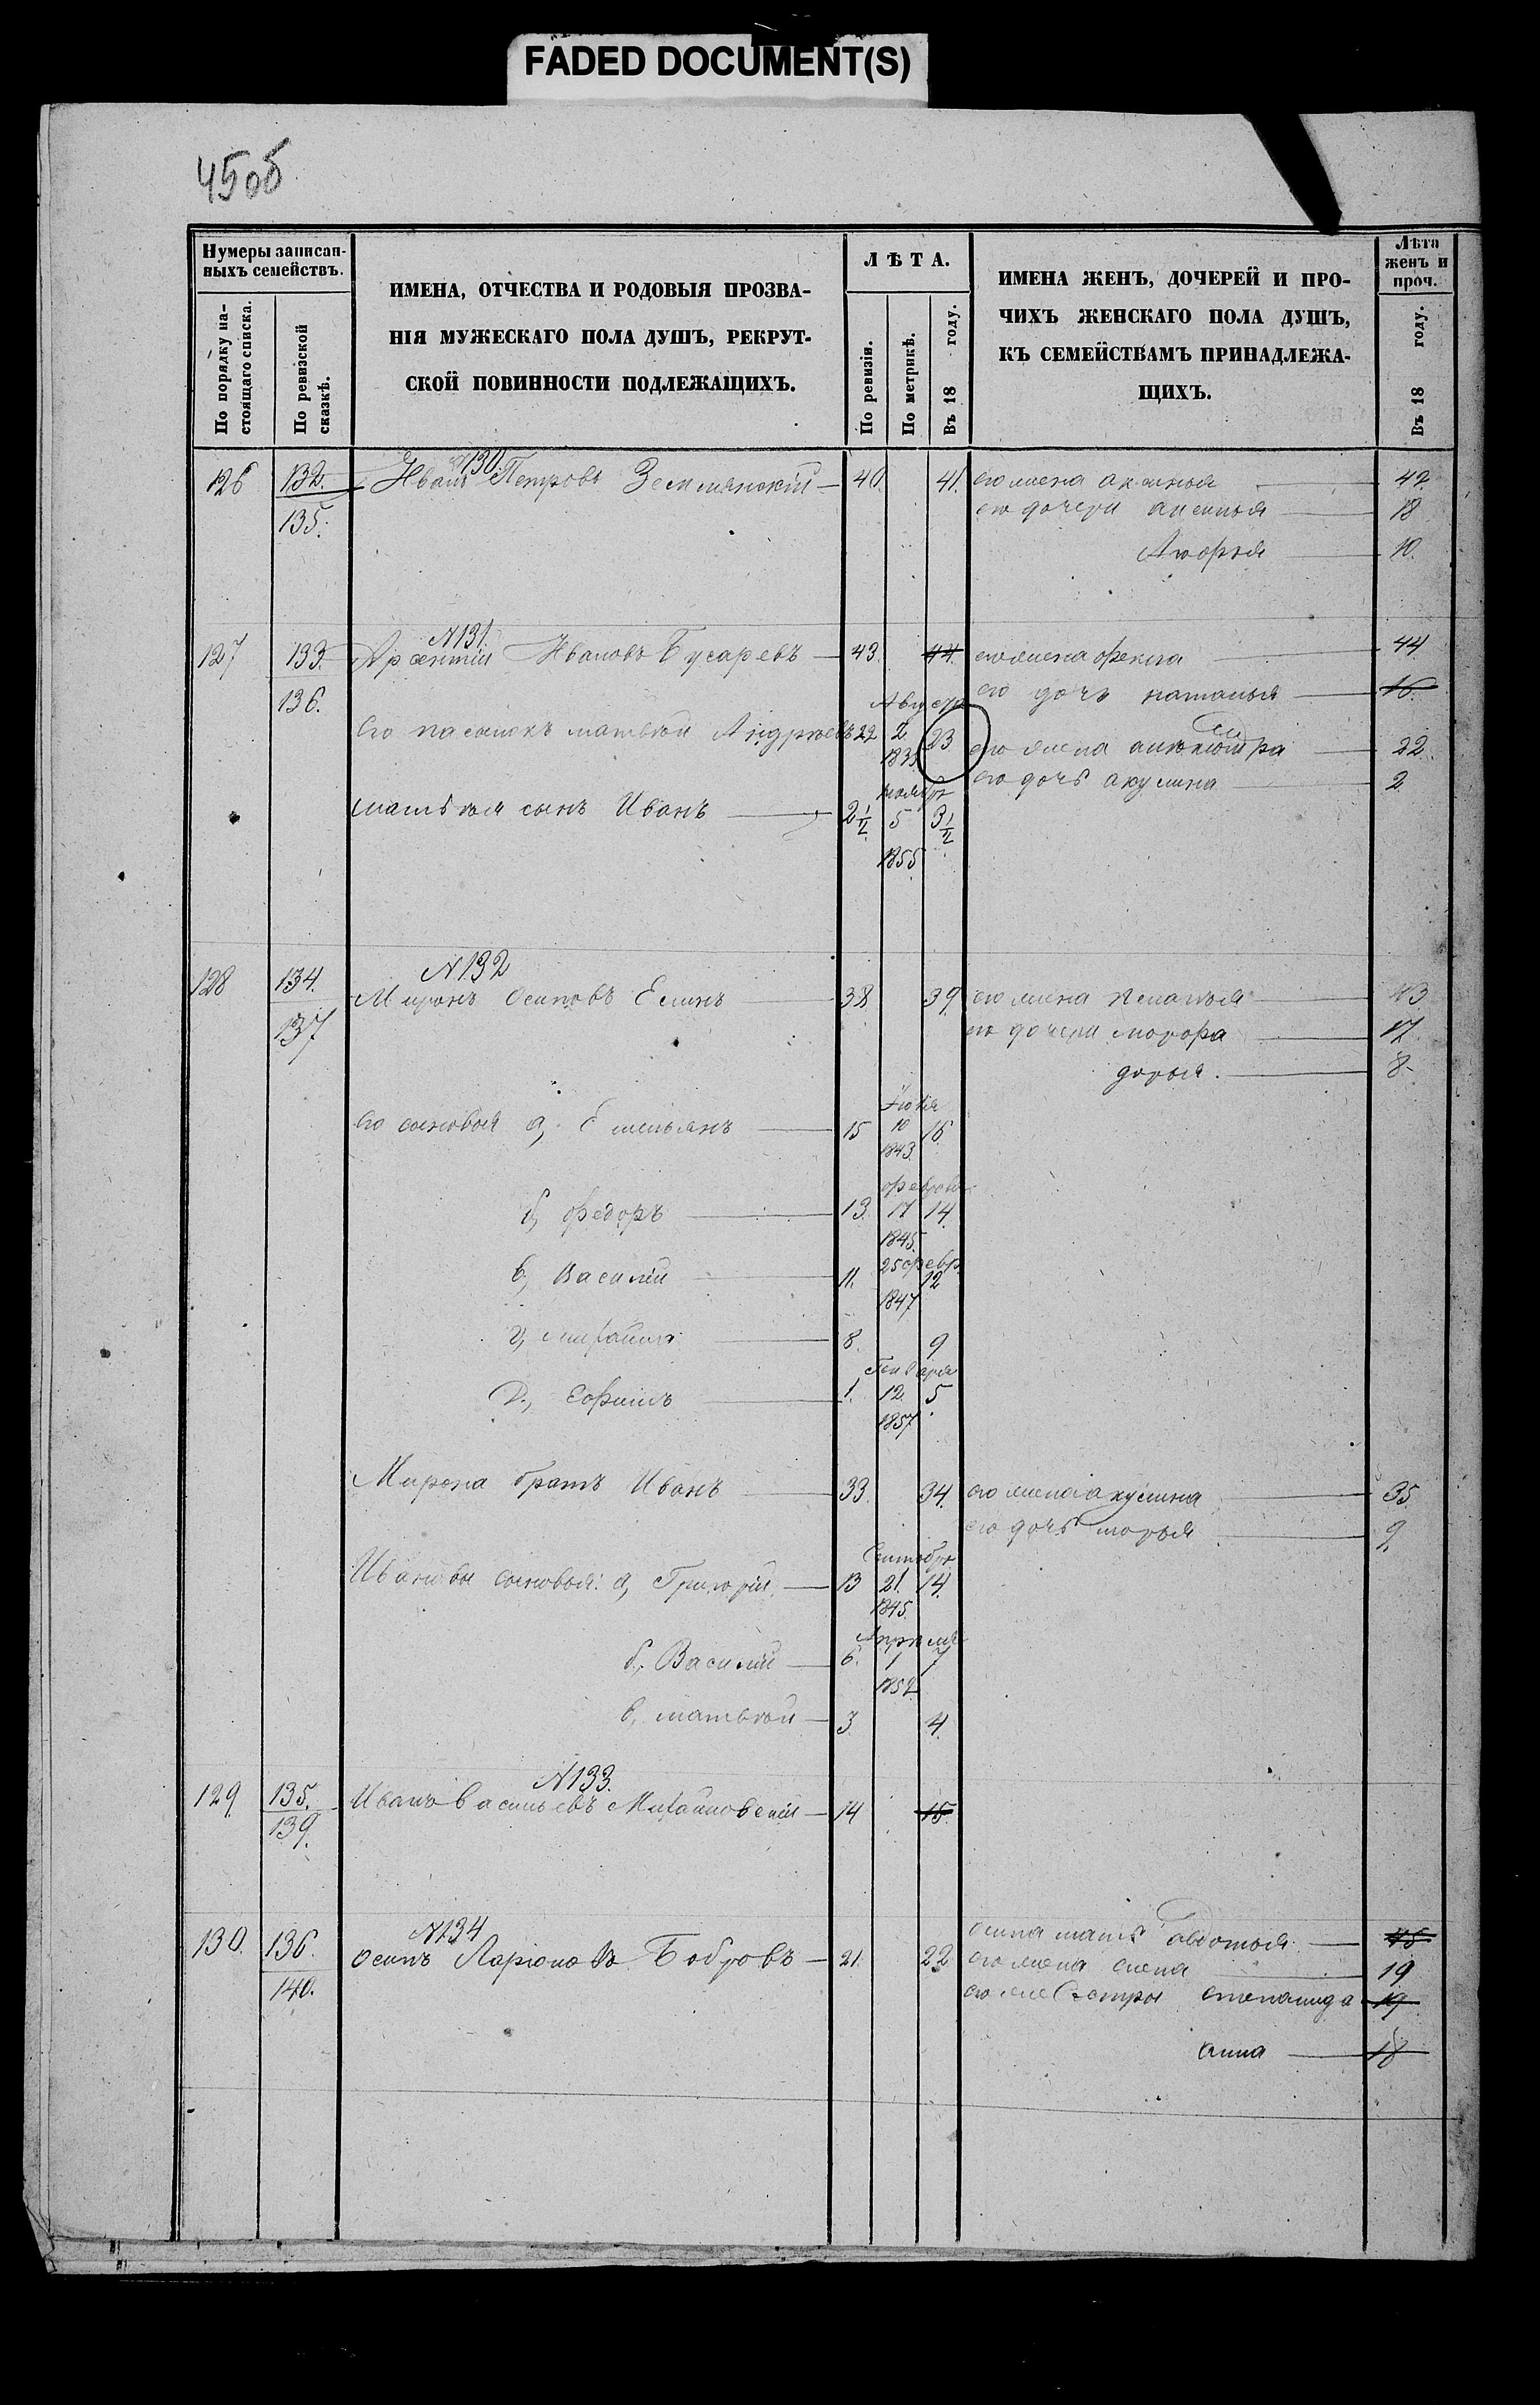 FADED DOCUMENT(S)
45об
Нумеры записан-
ныхъ семействъ.
По порядку на-
стоящаго списка.
По ревизской
сказкѣ.
ИМЕНА, ОТЧЕСТВА И РОДОВЫЯ ПРОЗВА-
НІЯ МУЖЕСКАГО ПОЛА ДУШЪ, РЕКРУТ-
СКОЙ ПОВИННОСТИ ПОДЛЕЖАЩИХЪ.
ЛѢТА.
По ревизіи.
По метрикѣ.
Въ 18 году.
ИМЕНА ЖЕНЪ, ДОЧЕРЕЙ И ПРО-
ЧИХЪ ЖЕНСКАГО ПОЛА ДУШЪ,
КЪ СЕМЕЙСТВАМЪ ПРИНАДЛЕЖА-
ЩИХЪ.
Лѣта
женъ и
проч.
Въ 18 году.
№130
126 132. Иванъ Петровъ Землянскій 40. 41. его жена 42.
135. его дочери 18
10.
№131.
127 133. Арсентій Ивановъ Бусаревъ 43. 44. его жена фекла 44
136. его дочь наталья 16.
Августа
его пасынокъ матвѣй Андрѣевъ 22 2 23 его жена 22
1835
его дочь акулина 2
Ноября
матвѣя сынъ Иванъ 2 1/2 5 3 1/2
1855
№132
128 134. Миронъ Осиповъ Елинъ 38. 39. его жена пелагея 43
137 его дочери 17
дарья. 8.
Іюля
его сыновья а, Емельянъ 15 10 16
1843.
февраля
б, федоръ 13. 17 14.
1845.
25 февр.
в, Василій 11. 12
1847
г, михайла 8. 9
Генваря
д., Ефимъ 1. 12. 5
1857
Мирона братъ Иванъ 33. 34. его жена акулина 35
его дочь марья 9
Сентября
Ивановы сыновья: а, Григорій 13 21. 14.
1845.
Апреля
б, Василій 6. 1 7
1852
в, матвѣй 3 4.
№133.
129 135. Иванъ Васильевъ Михайловскій 14 15
139.
№134
130. 136. Осипъ Ларіоновъ Бобровъ 21. 22 осипа мать авдотья 45
его жена елена 19
140. его сестры степанида 19
анна 18